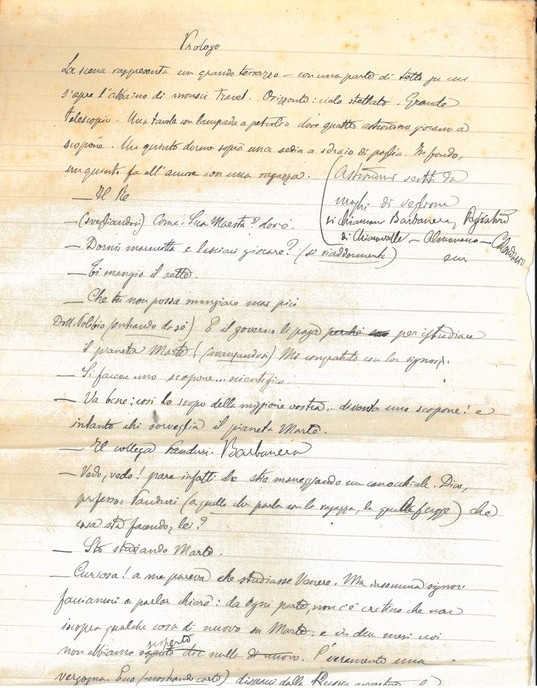 Prologo
La scena rappresenta un grande terrazzo – con una parte di tetto su cui
s'apre l'abbaino di monsù Travet. Orizzonte: cielo stellato – Grande
telescopio – Una tavola con lampada a petrolio dove quattro astronomi giocano a
scopone. Un quinto dorme sopra una sedia a sdraio di paglia. In fondo,
un quinto fa all'amore con una ragazza.
(Astronomi vestiti da
maghi di veglione
si chiamano Barbanera, Pescatore
di Chiaravalle – Almanacco –
— Il Re
— (svegliandosi) Come. Sua Maestà?
— Dormi marmotta e lasciaci giocare? (si riaddormenta)
— Ti mangio il sette.
— Che tu non possa mangiare mai più
Dott. Polibio (entrando da sé) E il governo li paga per istudiare
il pianeta Marte! (avanzandosi) Mi congratulo con lor signori.
— Si faceva uno scopone... scientifico.
— Va bene: così lo scopo della missione vostra... diventa uno scopone! e
intanto chi sorveglia il pianeta Marte.
— Il collega Barbanera
— Vedo, vedo! pare infatti che stia maneggiando un canocchiale. Dica,
professor (a quello che parla con la ragazza, la quale fugge) che
cosa sta facendo, lei?
— Sto studiando Marte.
— Curiosa! a me pareva che studiasse Venere. Ma insomma signori
facciamoci a parlar chiaro: da ogni parte, non c'è cretino che non
scopra qualche cosa di nuovo su Marte: e in dieci mesi noi
non abbiamo scoperto nulla di nuovo. È veramente una
vergogna. Ecco (mostrando carte) dispacci dalla Russia